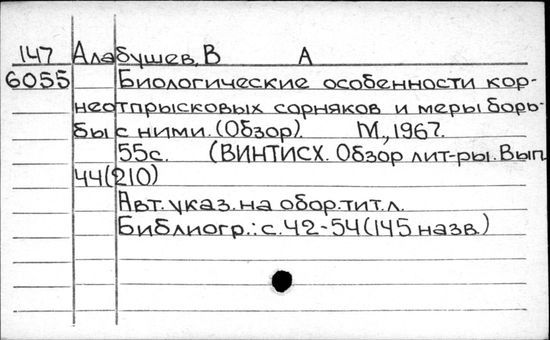 147 Алабушев, В А
6055 Биологические особенности кор-
неотпрысковых сорняков и меры борь-
бы с ними. (Обзор). М., 1967.
55с. (ВИНТИСХ. Обзор лит-ры. Вып.
44(210)
Авт. указ. на обор. тит. л.
Библиогр.: с. 42-54 (145 назв.)